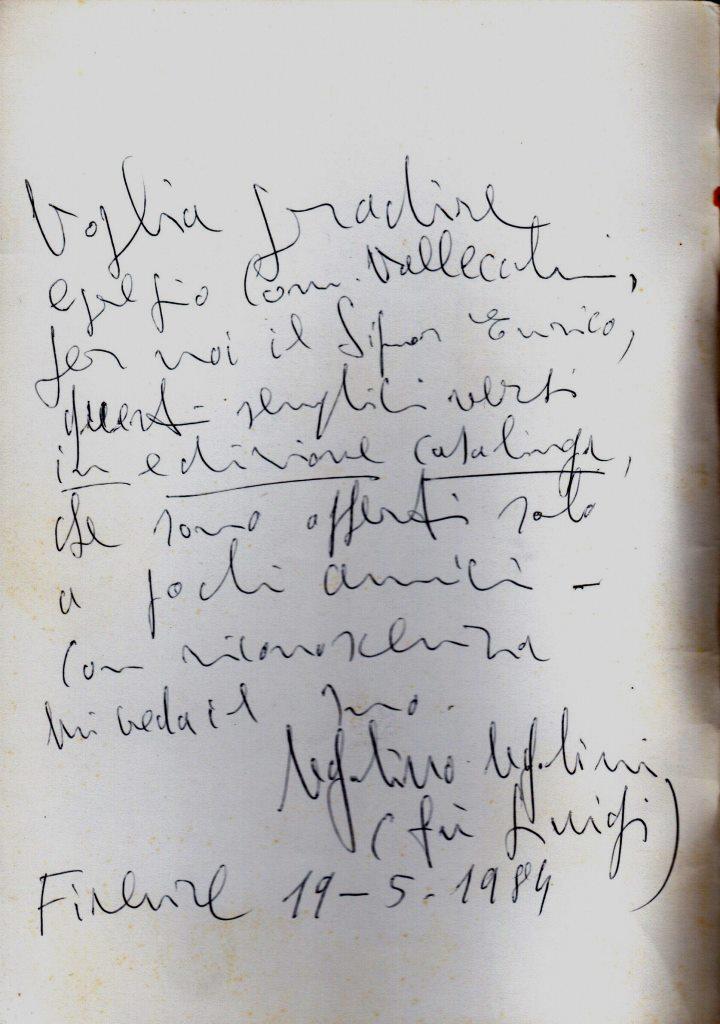 Voglia gradire
egregio Com. Vallecchi,
per noi il Signor Enrico,
questi semplici versi
in edizione casalinga,
che sono offerti solo
a pochi amici -
Con riconoscenza
mi creda il suo.
Ugolino Ugolini
(fu Luigi)
Firenze 19-5-1984